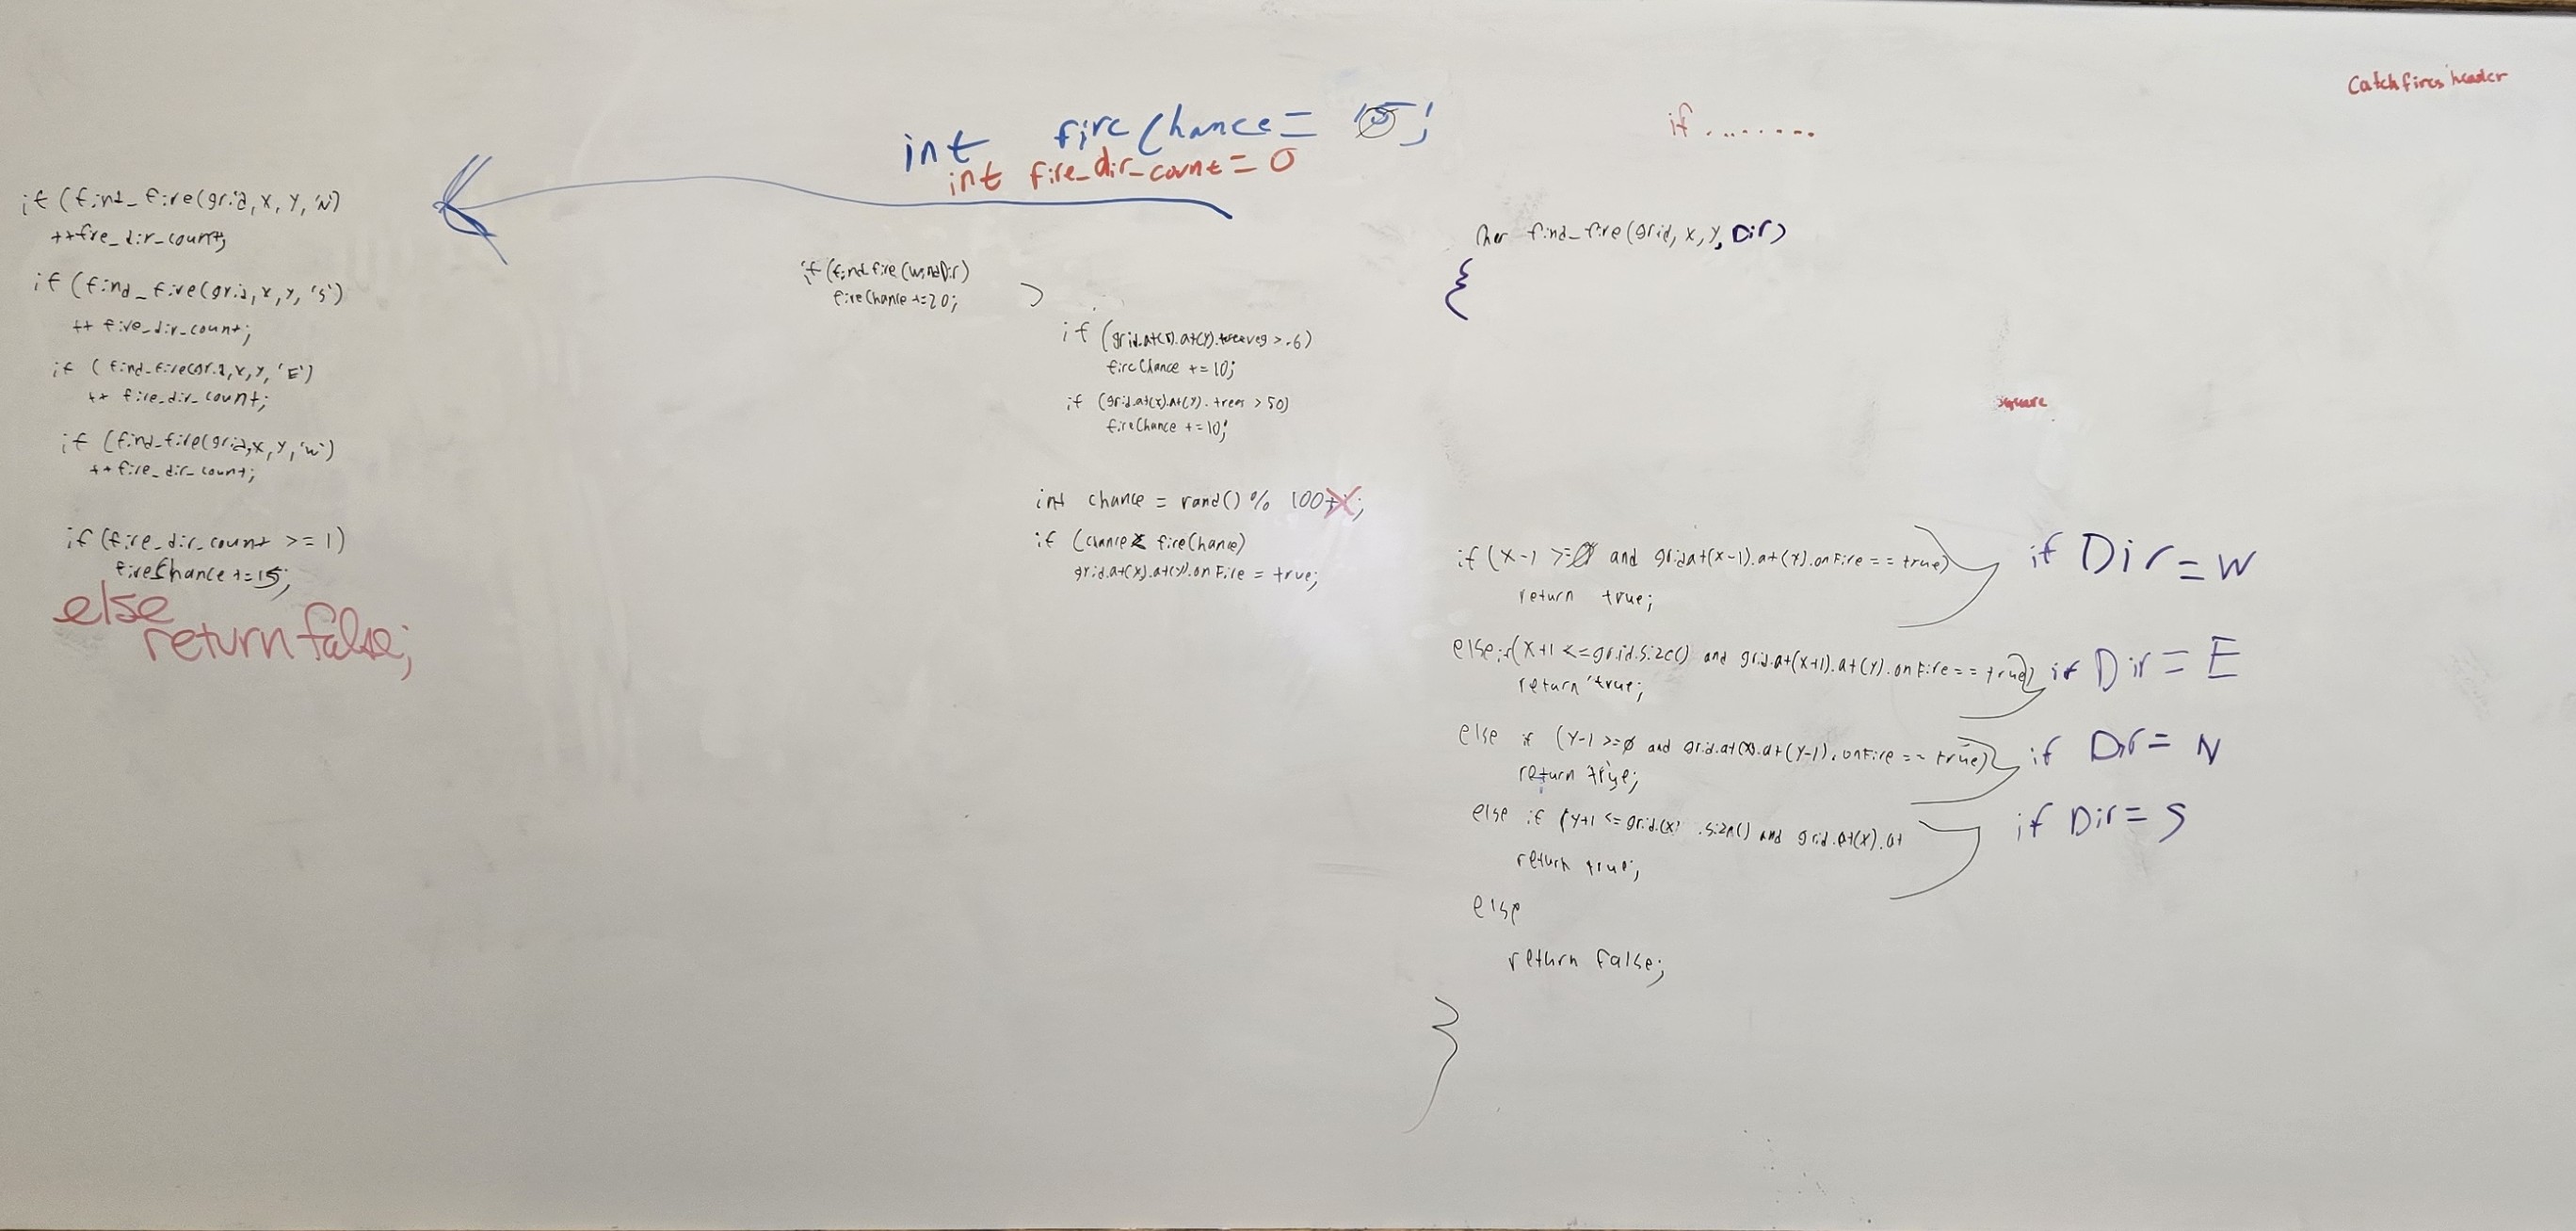 Catchfires header
int fireChance = 15;
if ........
int fire_dir_count = 0
if (find_fire(grid, x, y, 'N')
++fire_dir_count;
if (find_fire(grid, x, y, 'S')
++ fire_dir_count;
if (find_fire(grid, x, y, 'E')
++ fire_dir_count;
if (find_fire(grid, x, y, 'W')
++fire_dir_count;
if (fire_dir_count >= 1)
fireChance += 15;
else
return false;
if (find fire (windDir)
fireChance += 20;
if (grid.at(x).at(y). > .6)
fireChance += 10;
if (grid.at(x).at(y).trees > 50)
fireChance += 10;
int chance = rand() % 100+ ;
if (chance < fireChance)
grid.at(x).at(y).onFire = true;
find_fire(grid, x, y, Dir)
{
square
if (x-1 >= 0 and grid.at(x-1).at(y).onFire == true) if Dir = W
return true;
else if (x+1 <= grid.size() and grid.at(x+1).at(y).onFire == true) if Dir = E
return true;
else if (y-1 >= 0 and grid.at(x).at(y-1).onFire == true) if Dir = N
return true;
else if (y+1 <= grid.(x) .size() and grid.at(x).at if Dir = S
return true;
else
return false;
}